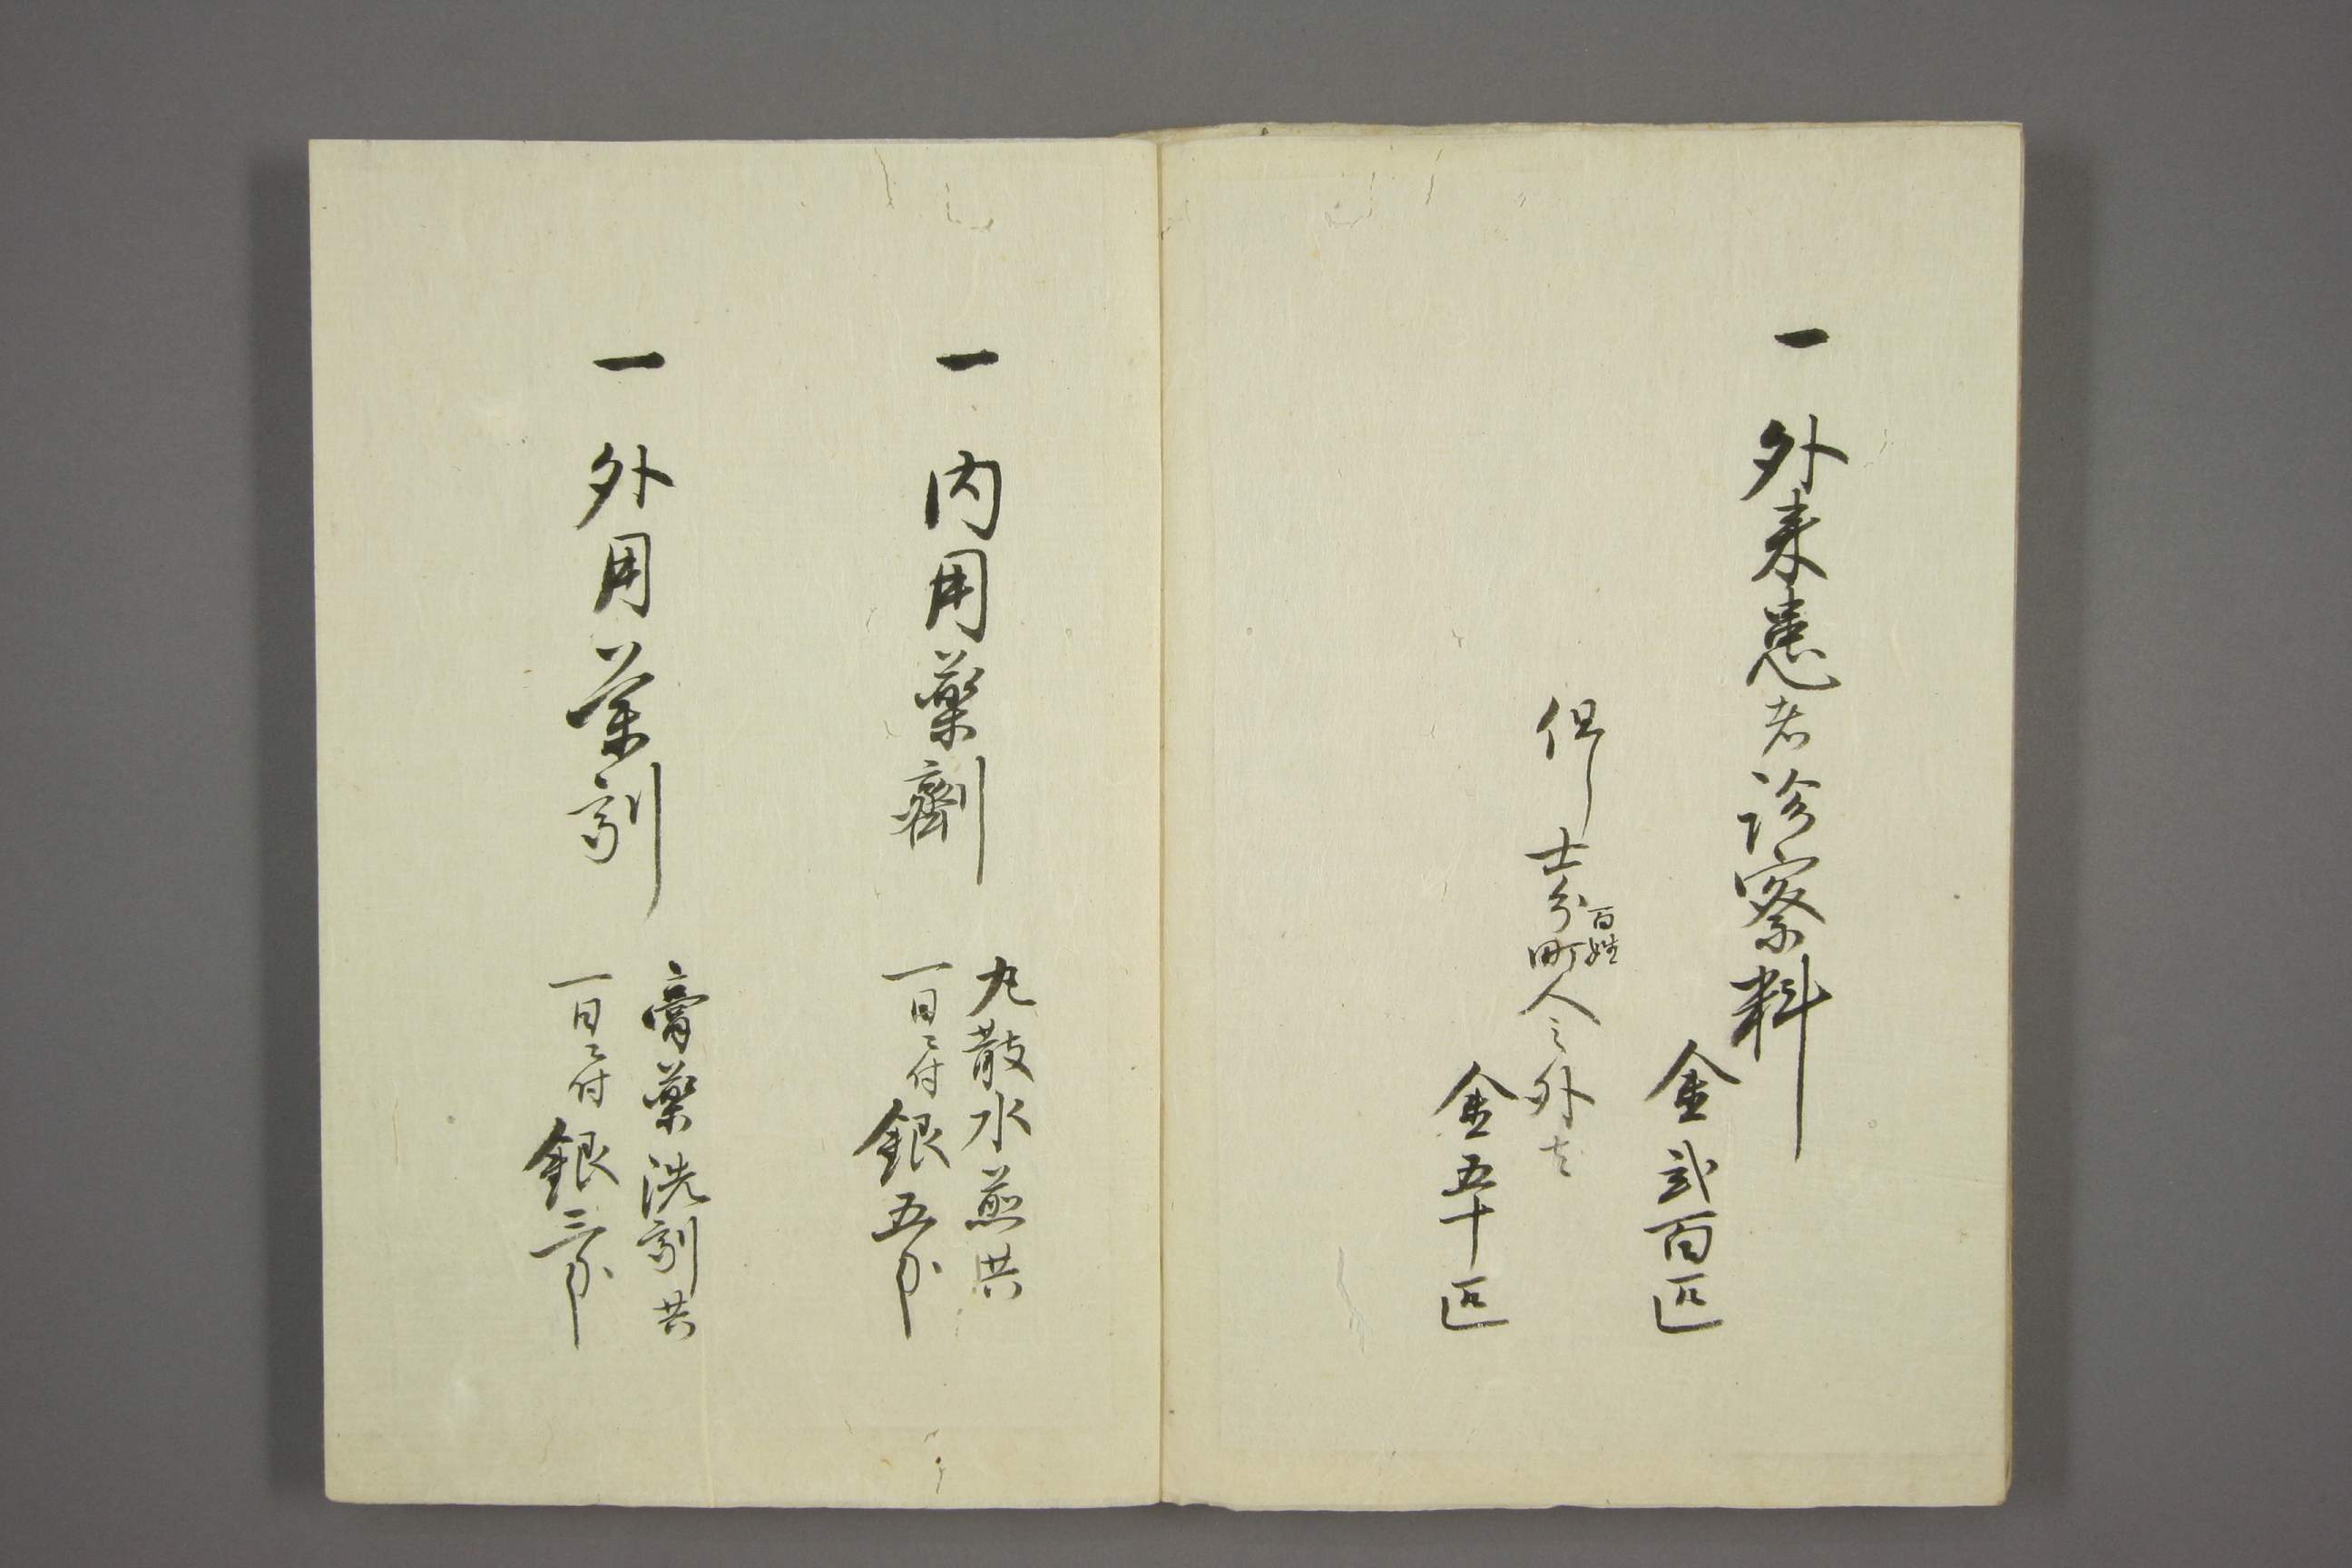 一 外来患者診察料
金弐百匹
但し士分百姓町人之外者
金五十匹
一 内用薬劑
丸散水煎共
一日ニ付銀五分
一 外用薬剤
膏薬洗剤共
一日ニ付銀三分